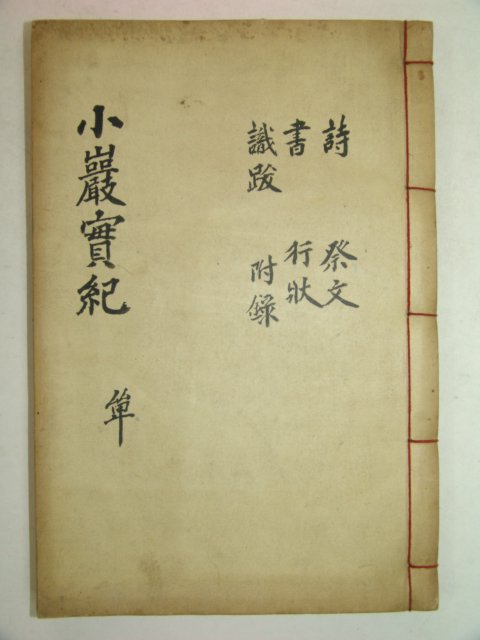 詩 祭文
書 行狀
識跋 附錄
小巖實紀 単